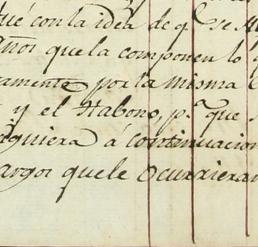 ué con la idea de q.e se
años que la componen lo
amente por la misma
y el Habono, p.a que
quiera á continuacion
argos que le ocurrieran